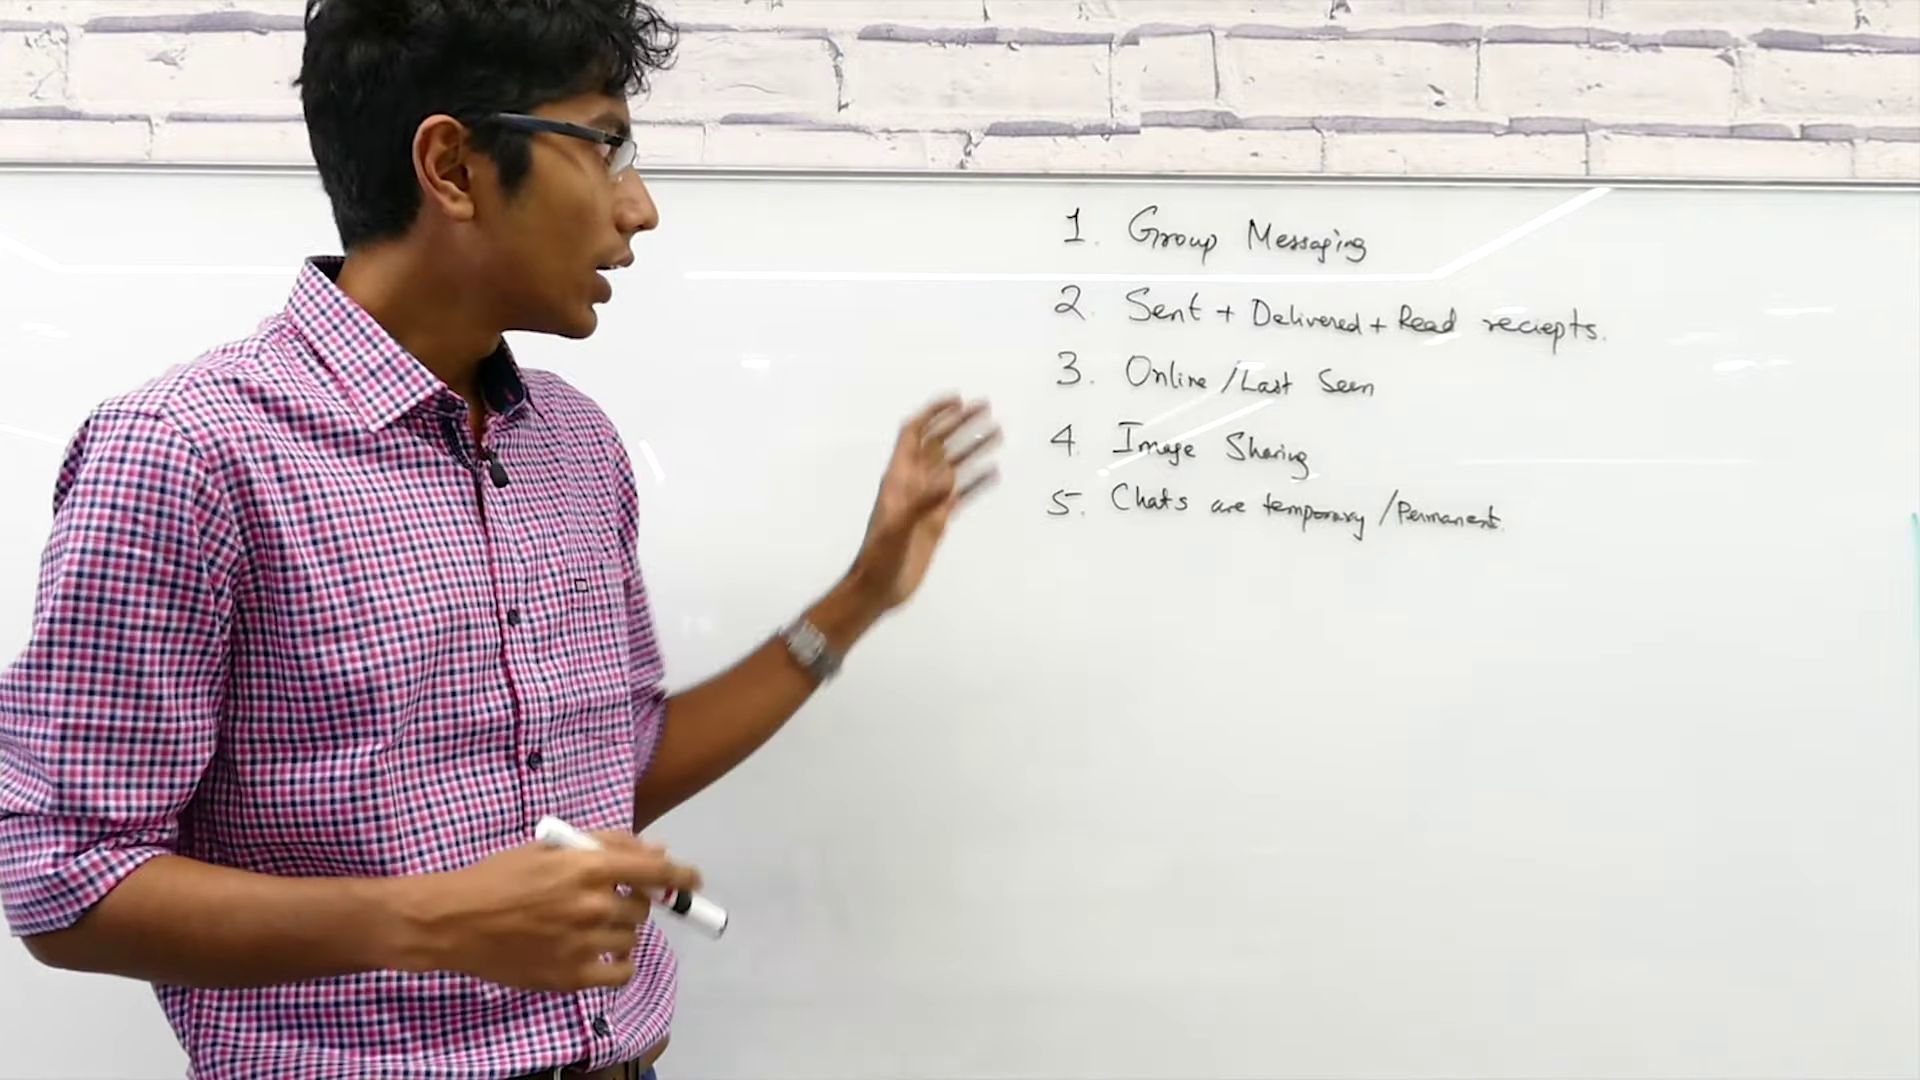 1. Group Messaging
2. Sent + Delivered + Read reciepts.
3. Online /Last Seen
4. Image Sharing
5. Chats are temporary /Permanent.